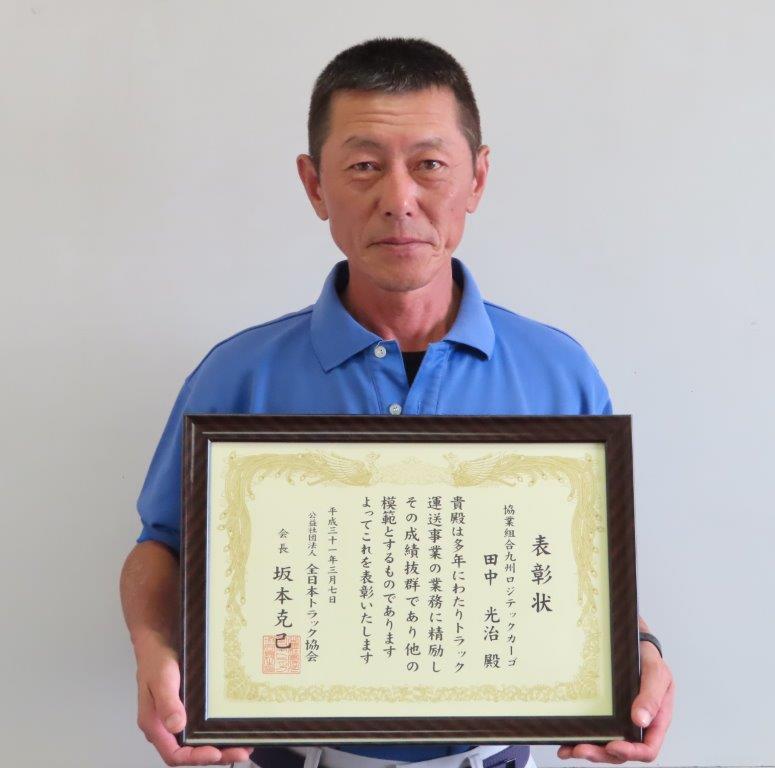 表彰状
協業組合九州ロジテックカーゴ
田中 光治 殿
貴殿は多年にわたりトラック
運送事業の業務に精励し
その成績抜群であり他の
模範とするものであります
よってこれを表彰いたします
平成三十一年三月七日
公益社団法人 全日本トラック協会
会長 坂本克己